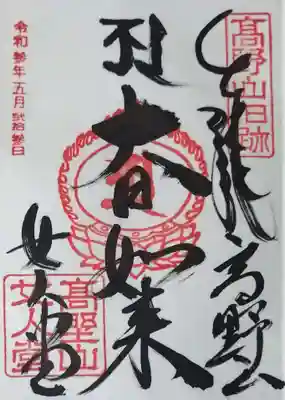 高野山旧跡
高野山
大日如来
女人堂
高埜山
女人堂
令和參年五月貳拾參日